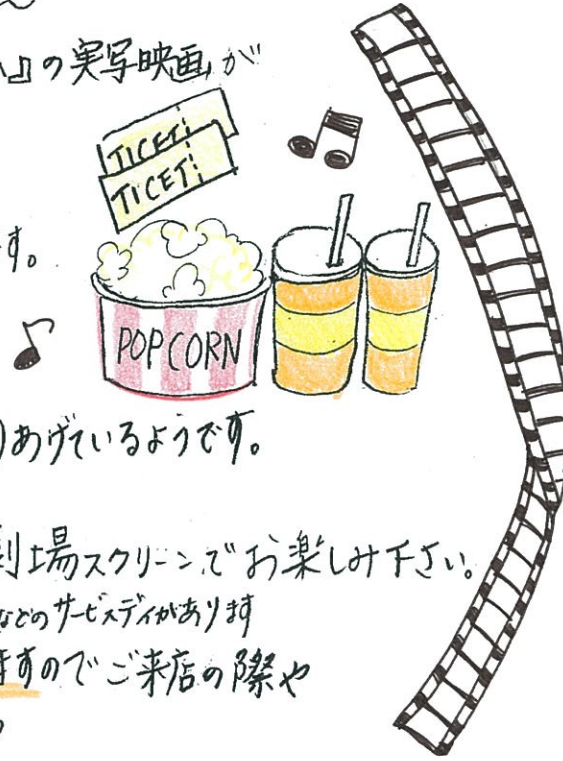 』の実写映画が
TICET
TICET
す。
POPCORN
あげているようです。
劇場スクリーンでお楽しみ下さい。
などのサービスデイがあります
ますのでご来店の際や